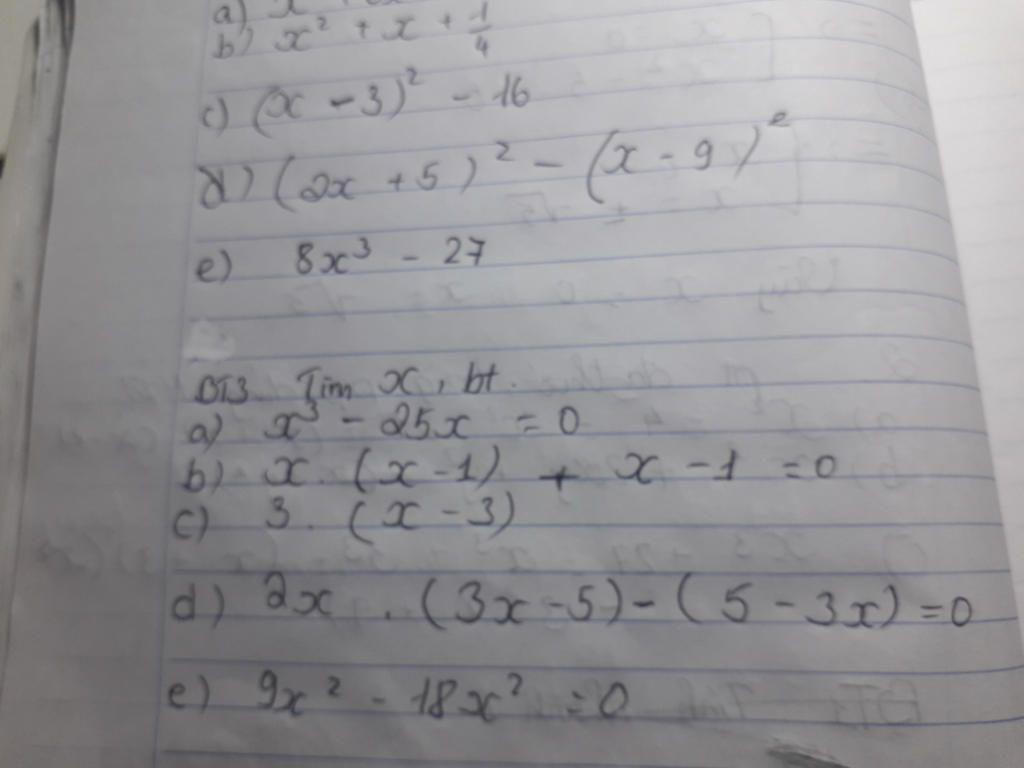 a) x
b) x² + x + 1/4
c) (x - 3)² - 16
d) (2x + 5)² - (x - 9)²
e) 8x³ - 27
BT3. Tìm x, bt.
a) x³ - 25x = 0
b) x. (x - 1) + x - 1 = 0
c) 3 . (x - 3)
d) 2x . (3x - 5) - (5 - 3x) = 0
e) 9x² - 18x² = 0